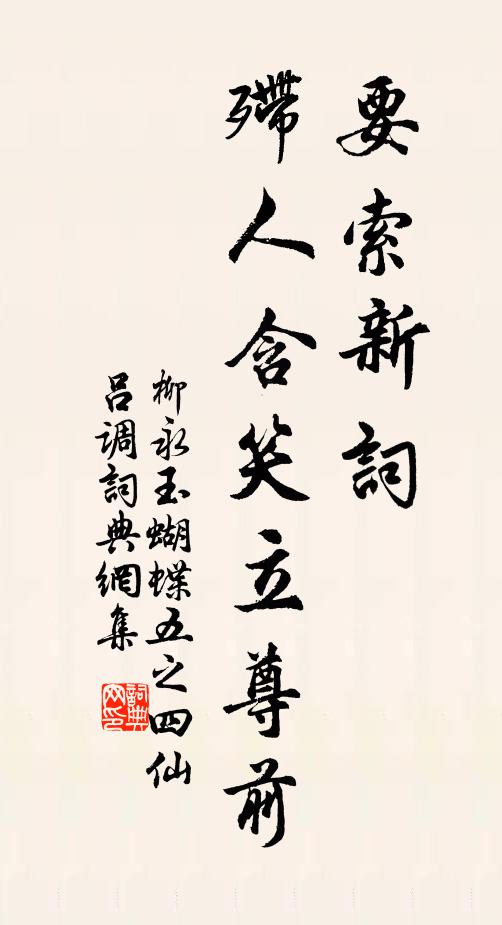 要索新詞
殢人含笑立尊前
柳永玉蝴蝶五之四仙
呂调詞典網集
詞典
网印